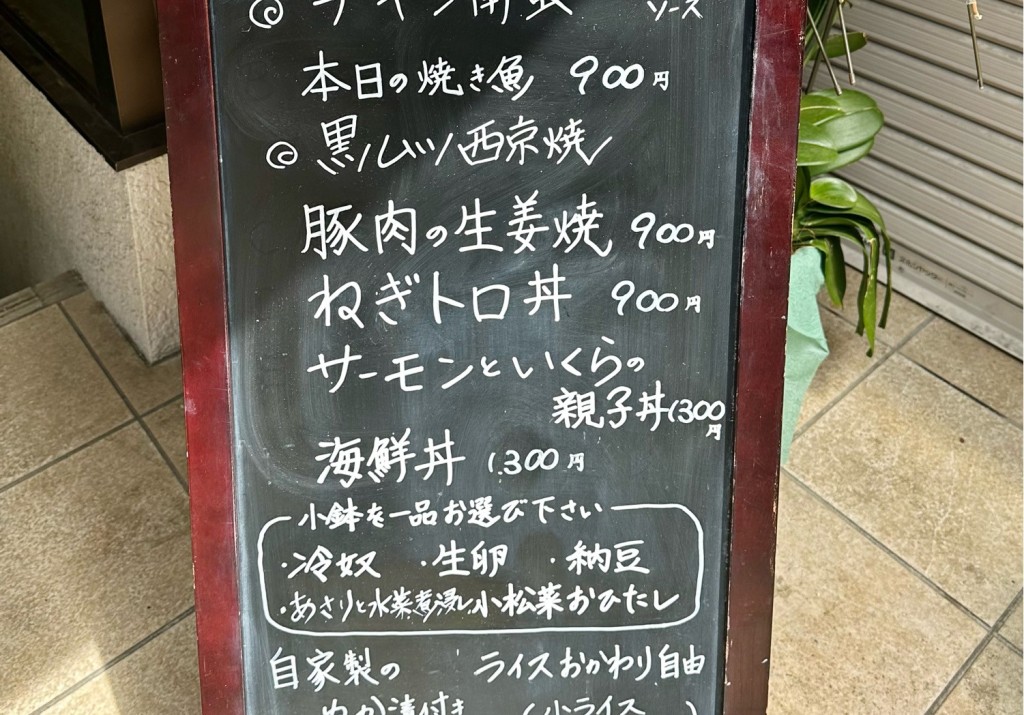 ◎チキン南蛮 ソース
本日の焼き魚 900円
◎黒ムツ西京焼
豚肉の生姜焼 900円
ねぎトロ丼 900円
サーモンといくらの
親子丼1300円
海鮮丼 1.300円
小鉢を一品お選び下さい
・冷奴 ・生卵 ・納豆
・あさりと水菜煮浸し 小松菜おひたし
自家製の ライスおかわり自由
ぬか漬付き (小ライス )